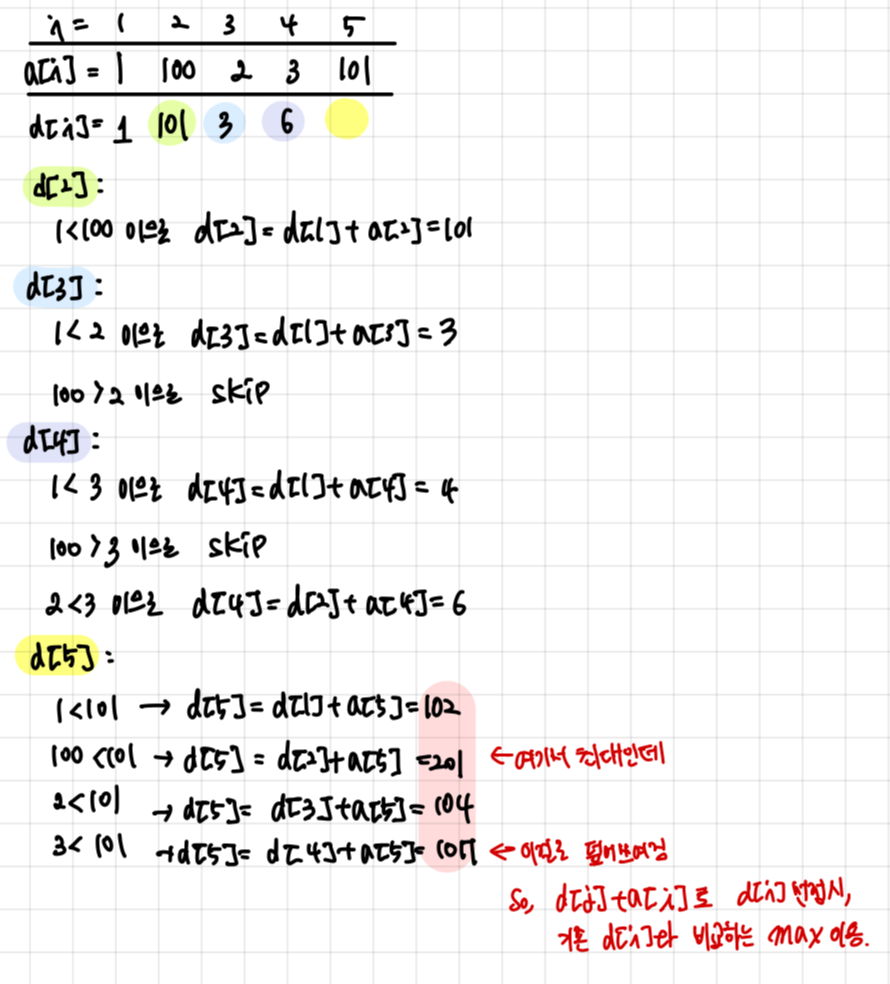 i = 1 2 3 4 5
a[i] = 1 100 2 3 101
d[i] = 1 101 3 6
d[2] :
1<100 이므로 d[2] = d[1] + a[2] = 101
d[3] :
1<2 이므로 d[3] = d[1] + a[3] = 3
100 > 2 이므로 skip
d[4] :
1<3 이므로 d[4] = d[1] + a[4] = 4
100 > 3 이므로 skip
2<3 이므로 d[4] = d[2] + a[4] = 6
d[5] :
1<101 → d[5] = d[1] + a[5] = 102
100 <101 → d[5] = d[2] + a[5] = 201 ← 여기서 최대인데
2<101 → d[5] = d[3] + a[5] = 104
3< 101 → d[5] = d[4] + a[5] = 107 ← 이걸로 덮어쓰여짐
So, d[j] + a[i] 로 d[i] 선정시,
기존 d[i]와 비교하는 max 이용.